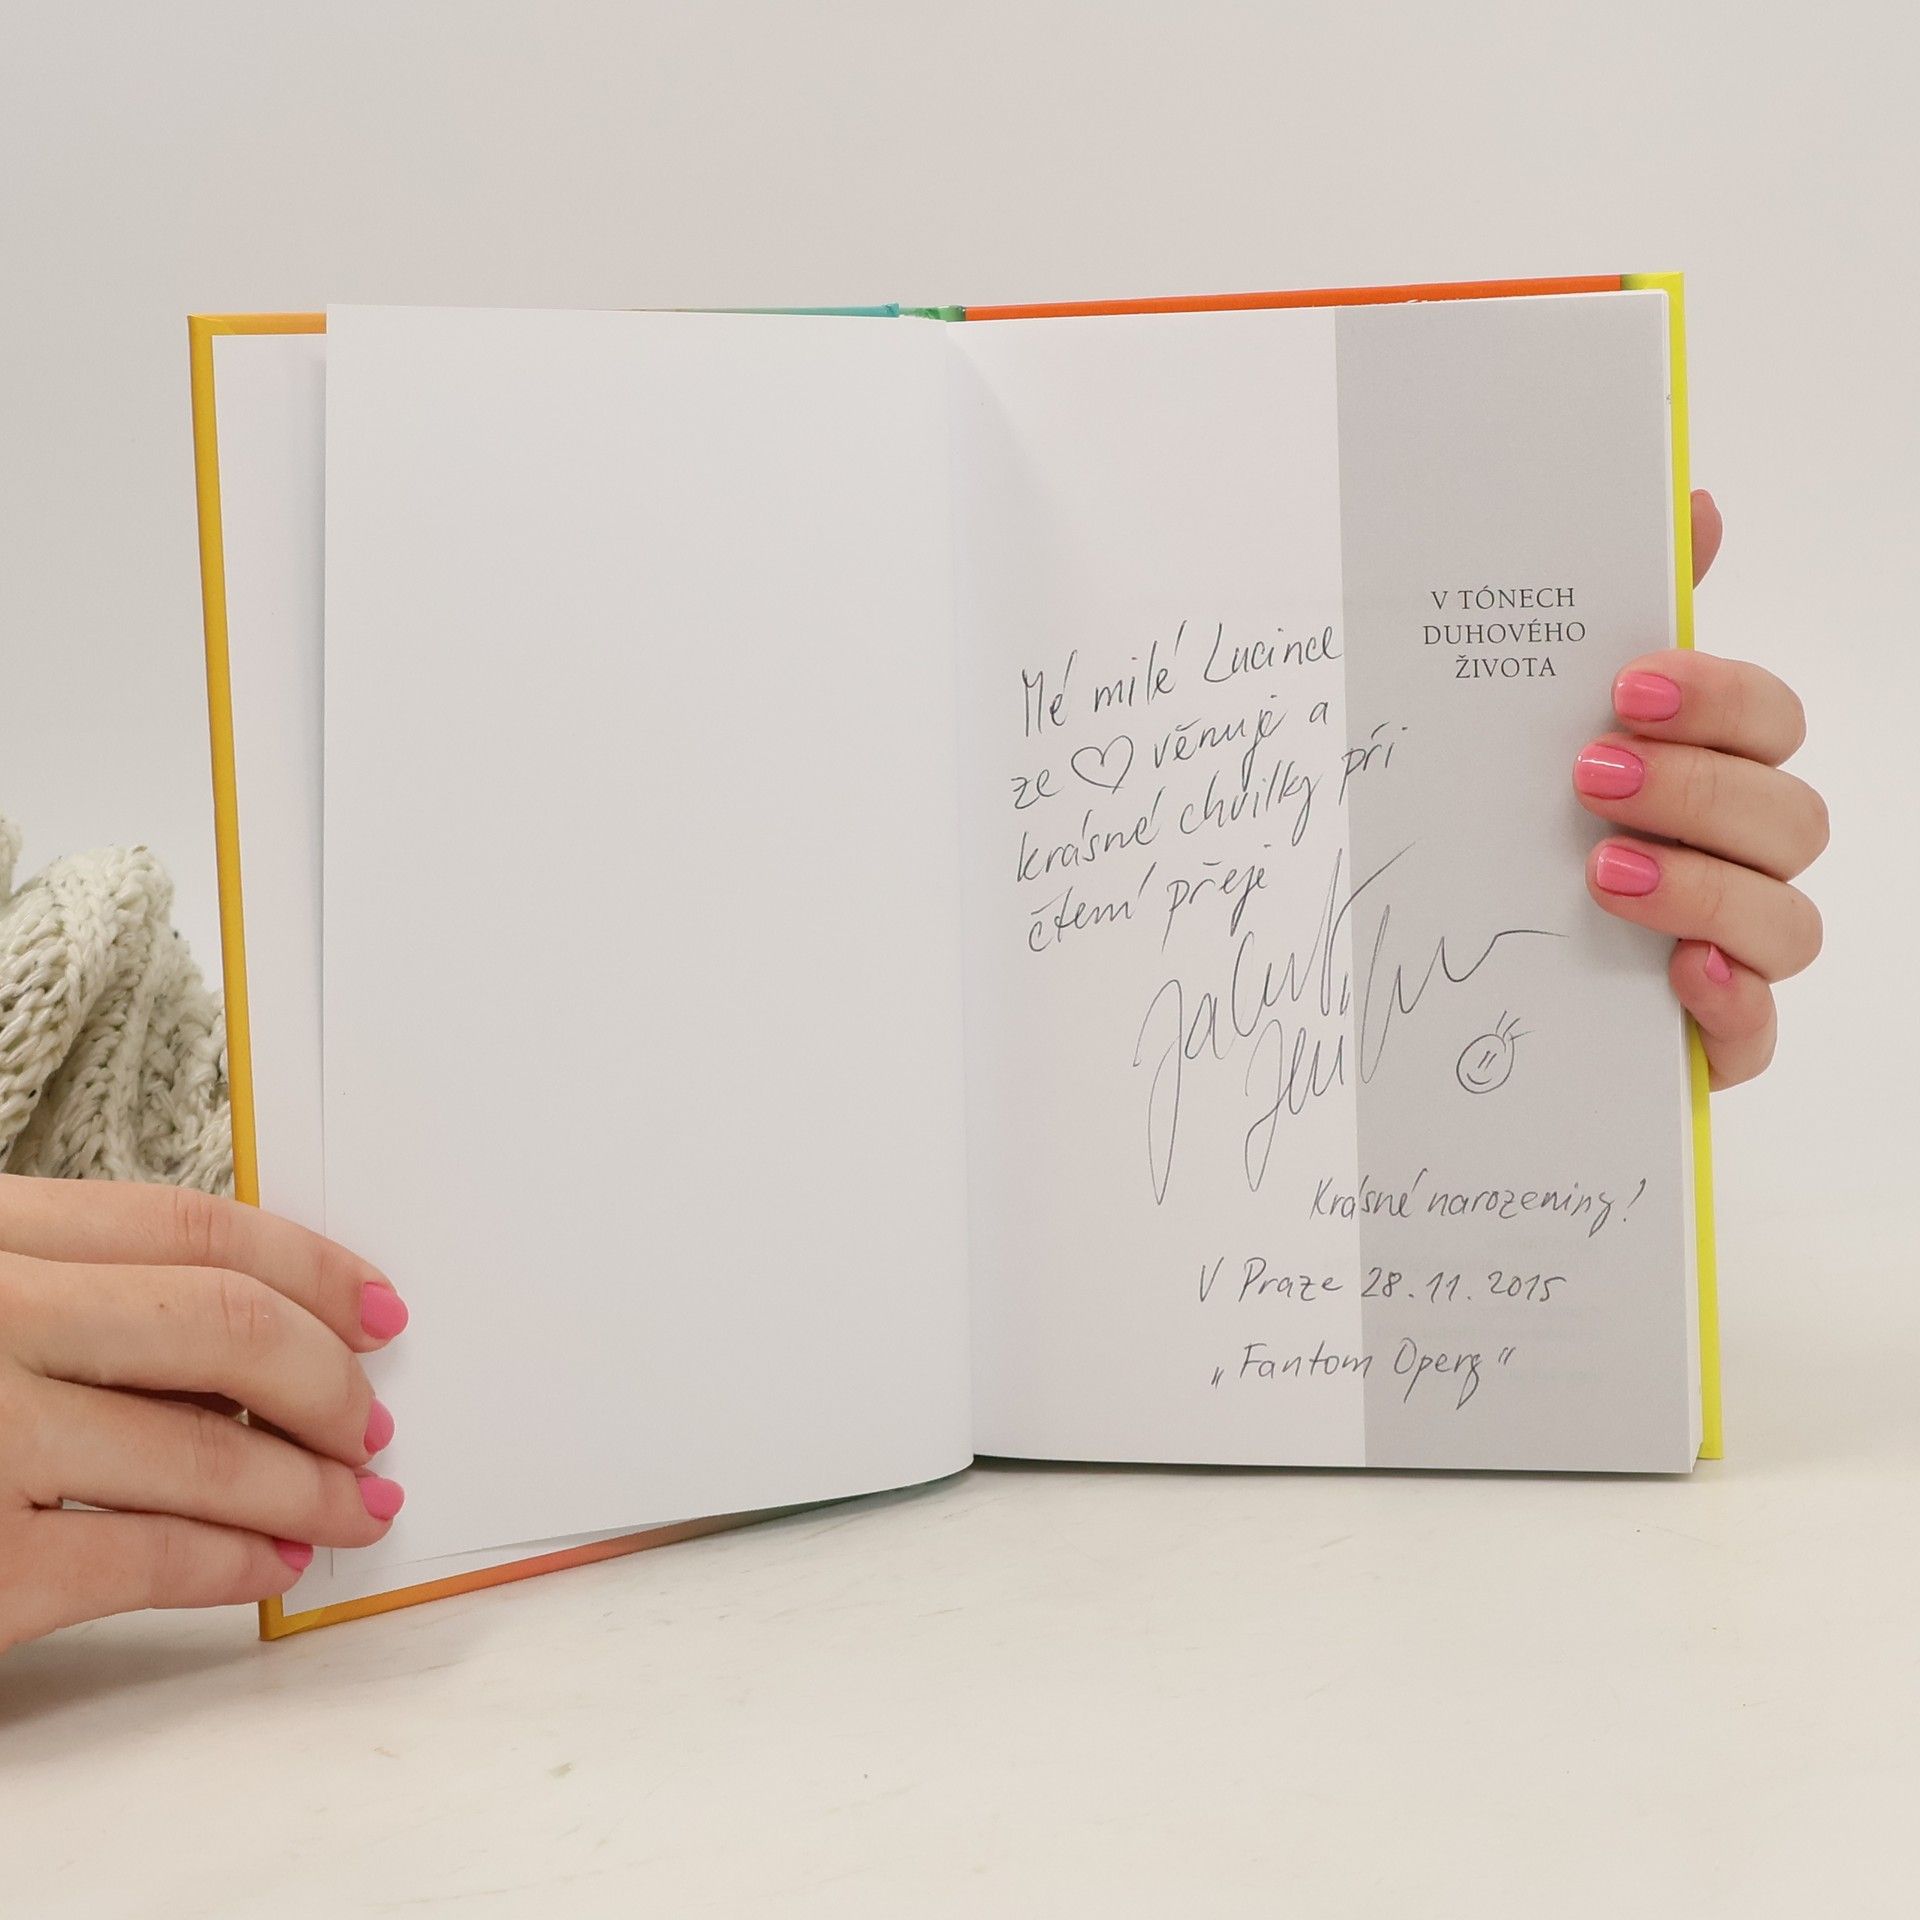 V TÓNECH
DUHOVÉHO
ŽIVOTA
Mé milé Lucince
ze ♡ věnuje a
krásné chvilky při
čtení přeje
Krásné narozeniny!
V Praze 28.11.2015
„Fantom Opery“